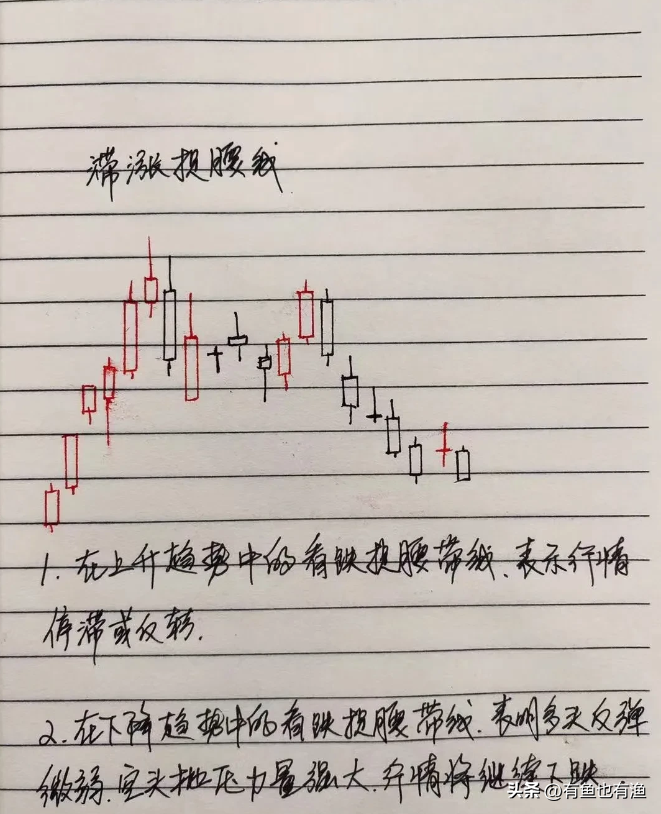 滞涨捉腰线
1. 在上升趋势中的看跌捉腰带线、表示行情
停滞或反转.
2. 在下降趋势中的看跌捉腰带线.表明多头反弹
微弱.空头抛压力量强大.行情将继续下跌.
头条 @有鱼也有渔